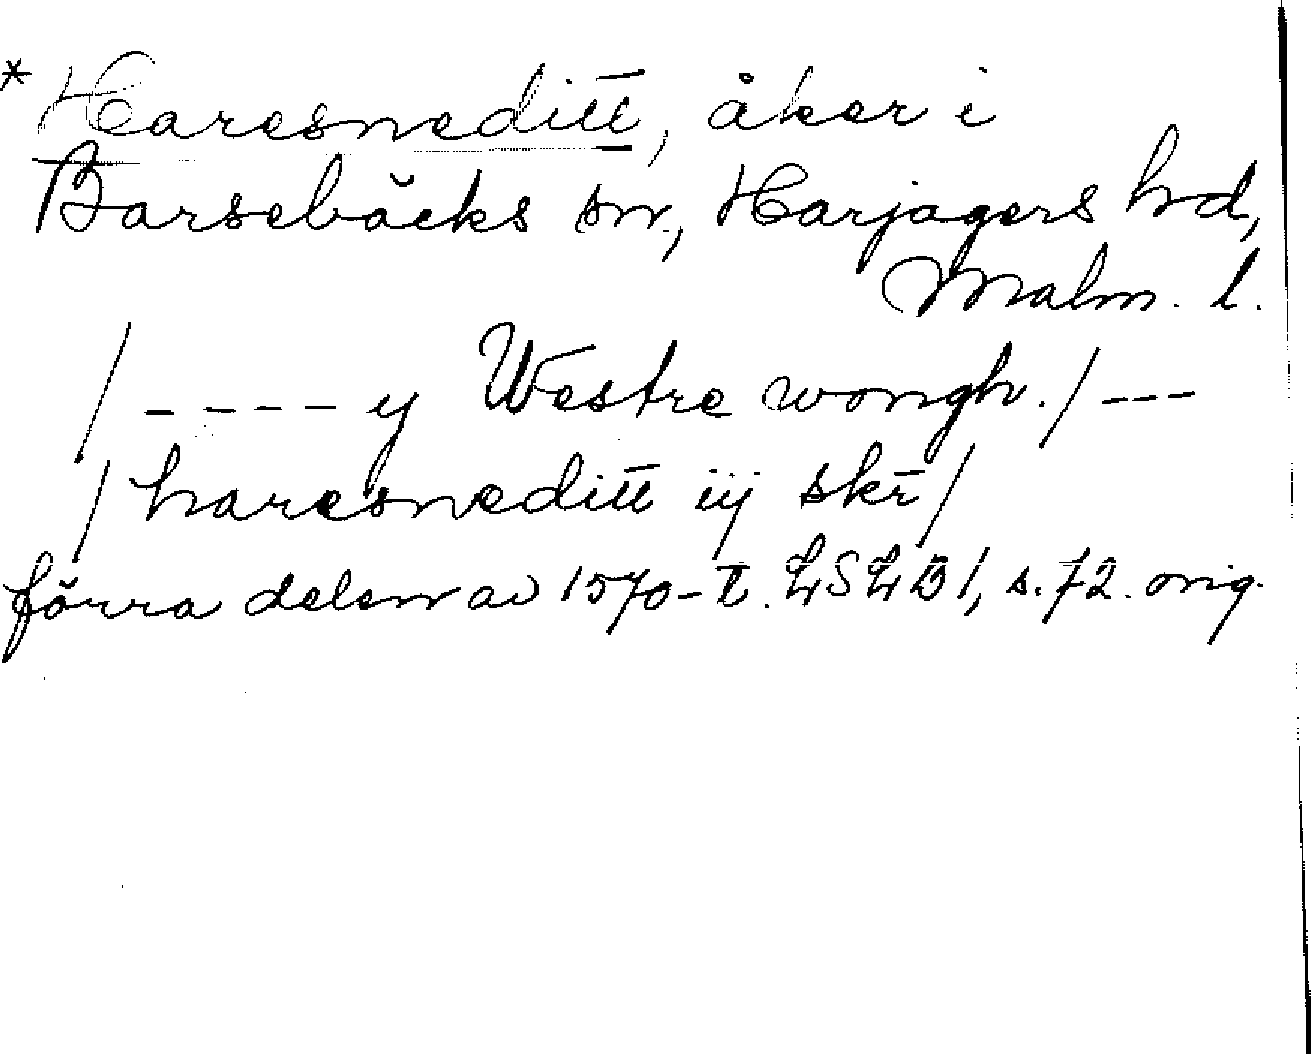 * Haresneditt, åker i
Barsebäcks sn, Harjagers hd,
Malm. l.
/ - - - - y Westre wongh. / - - -
/ haresneditt iij skr̄ /
förra delen av 1570-t. LSLB 1, s. 72. orig.